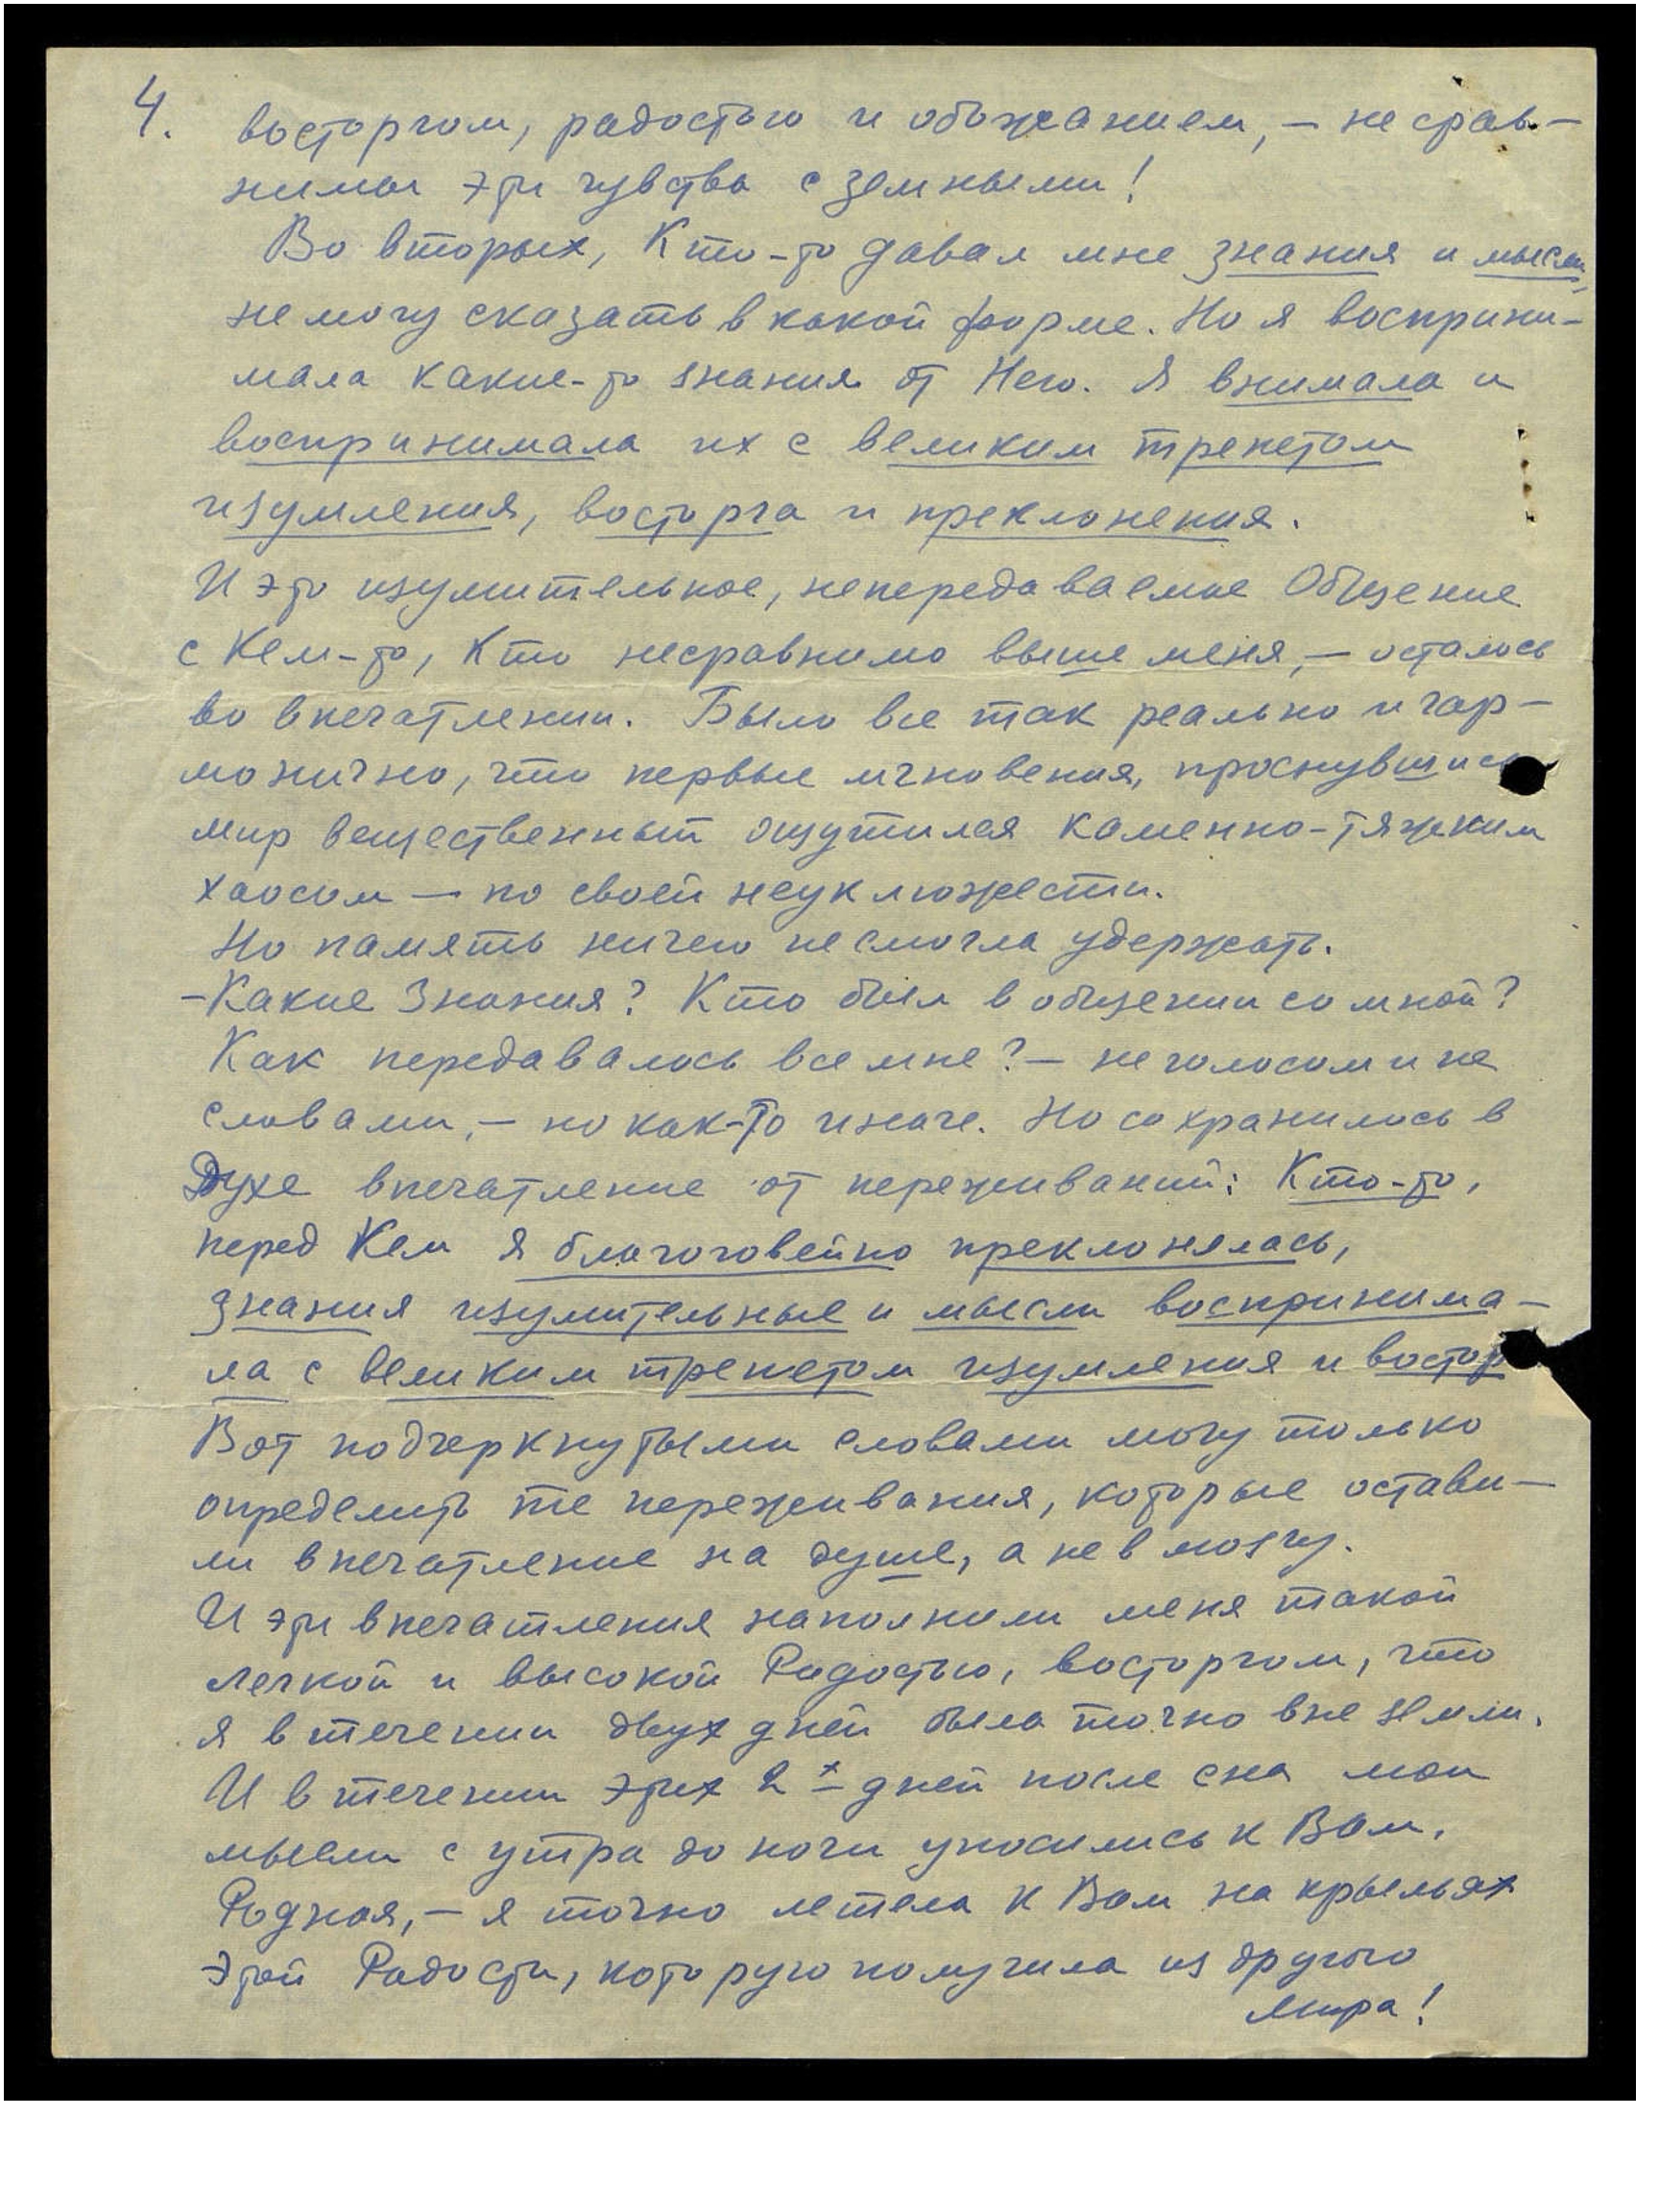 4. восторгом, радостью и обожанием, — не срав-
нимы эти чувства с земными!
Во вторых, Кто-то давал мне знания и мысли,
не могу сказать в какой форме. Но я восприни-
мала какие-то знания от Него. Я внимала и
воспринимала их с великим трепетом
изумления, восторга и преклонения.
И это изумительное, непередаваемое Общение
с Кем-то, Кто несравнимо выше меня, — осталось
во впечатлении. Было все так реально и гар-
монично, что первые мгновения, проснувшись
мир вещественный ощутился каменно-тяжким
хаосом — по своей неуклюжести.
Но память ничего не смогла удержать.
- Какие Знания? Кто был в общении со мной?
Как передавалось все мне? — не голосом и не
словами, — но как-то иначе. Но сохранилось в
Духе впечатление от переживаний: Кто-то,
перед Кем я благоговейно преклонялась,
знания изумительные и мысли воспринима-
ла с великим трепетом изумления и востор
Вот подчеркнутыми словами могу только
определить те переживания, которые остави-
ли впечатление на душе, а не в мозгу.
И эти впечатления наполнили меня такой
легкой и высокой Радостью, восторгом, что
я в течении двух дней была точно вне земли.
И в течении этих 2х дней после сна мои
мысли с утра до ночи уносились к Вам,
Родная, — я точно летела к Вам на крыльях
этой Радости, которую получила из другого
мира!